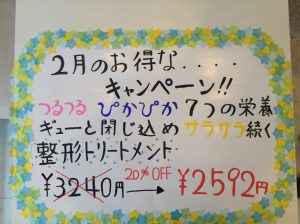 2月のお得な....
キャンペーン!!
つるつる ぴかぴか 7つの栄養
ギューと閉じ込め サラサラ続く
整形トリートメント
¥3240円 20%OFF → ¥2592円